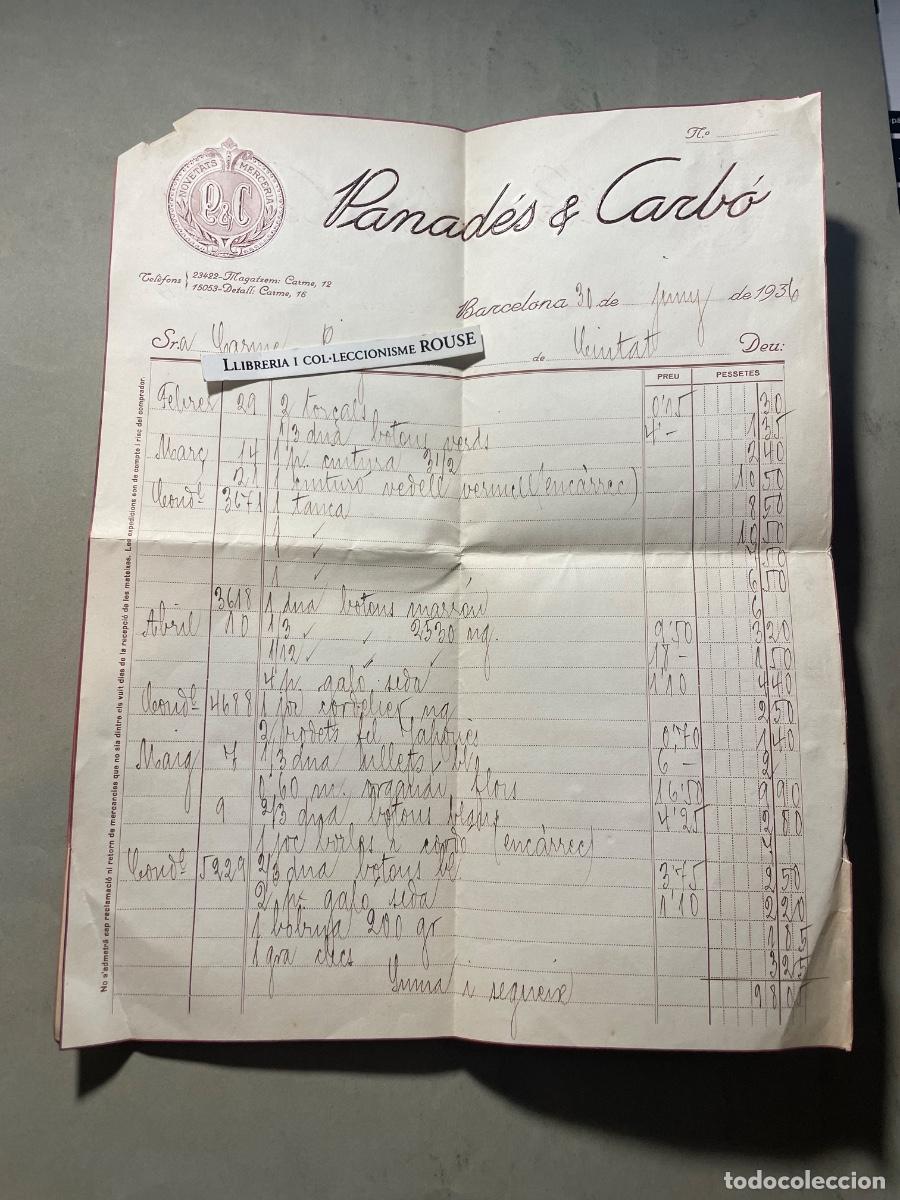 N.º
NOVETATS MERCERIA
P&C
Panadés & Carbó
Telèfons 23422-Magatzem: Carme, 12
15053-Detall: Carme, 16
Barcelona 30 de Juny de 1936
Sra Carme
LLIBRERIA I COL·LECCIONISME ROUSE
de Ciutat Deu:
PREU PESSETES
Febrer 29 2 torçals 0'15 30
1/3 dna botons verds 4'- 1 35
Març 14 1 p. cintura 3 1/2 2 40
21 1 cinturó vedell vermell (encàrrec) 10 50
Cond. 3671 1 tanca 8 50
1 " 50
1 " 6 50
3618 1 dna botons marrón 6
Abril 10 1/3 " " 2530 ng. 9'50 3 20
1/12 " " " 18- 1 50
4 p. galó seda 1'10 4 40
Cond. 4688 1 joc cordelier ng 2 50
2 rodets fil 0'70 1 40
Maig 7 1/3 dna ullets 6- 2
0'60 m. organdí flors 16'50 9 90
9 2/3 dna botons blanc 4'25 2 80
1 joc borles i cordó (encàrrec) 4
Cond. 5229 2/3 dna botons bl 3'75 2 50
2 p. galó seda 1'10 2 20
1 bobina 200 gr
1 gra clecs
Suma i segueix 98 05
No s'admetrà cap reclamació ni retorn de mercancies que no sia dintre els vuit dies de la recepció de les mateixes. Les expedicions son de compte i risc del comprador.
todocoleccion